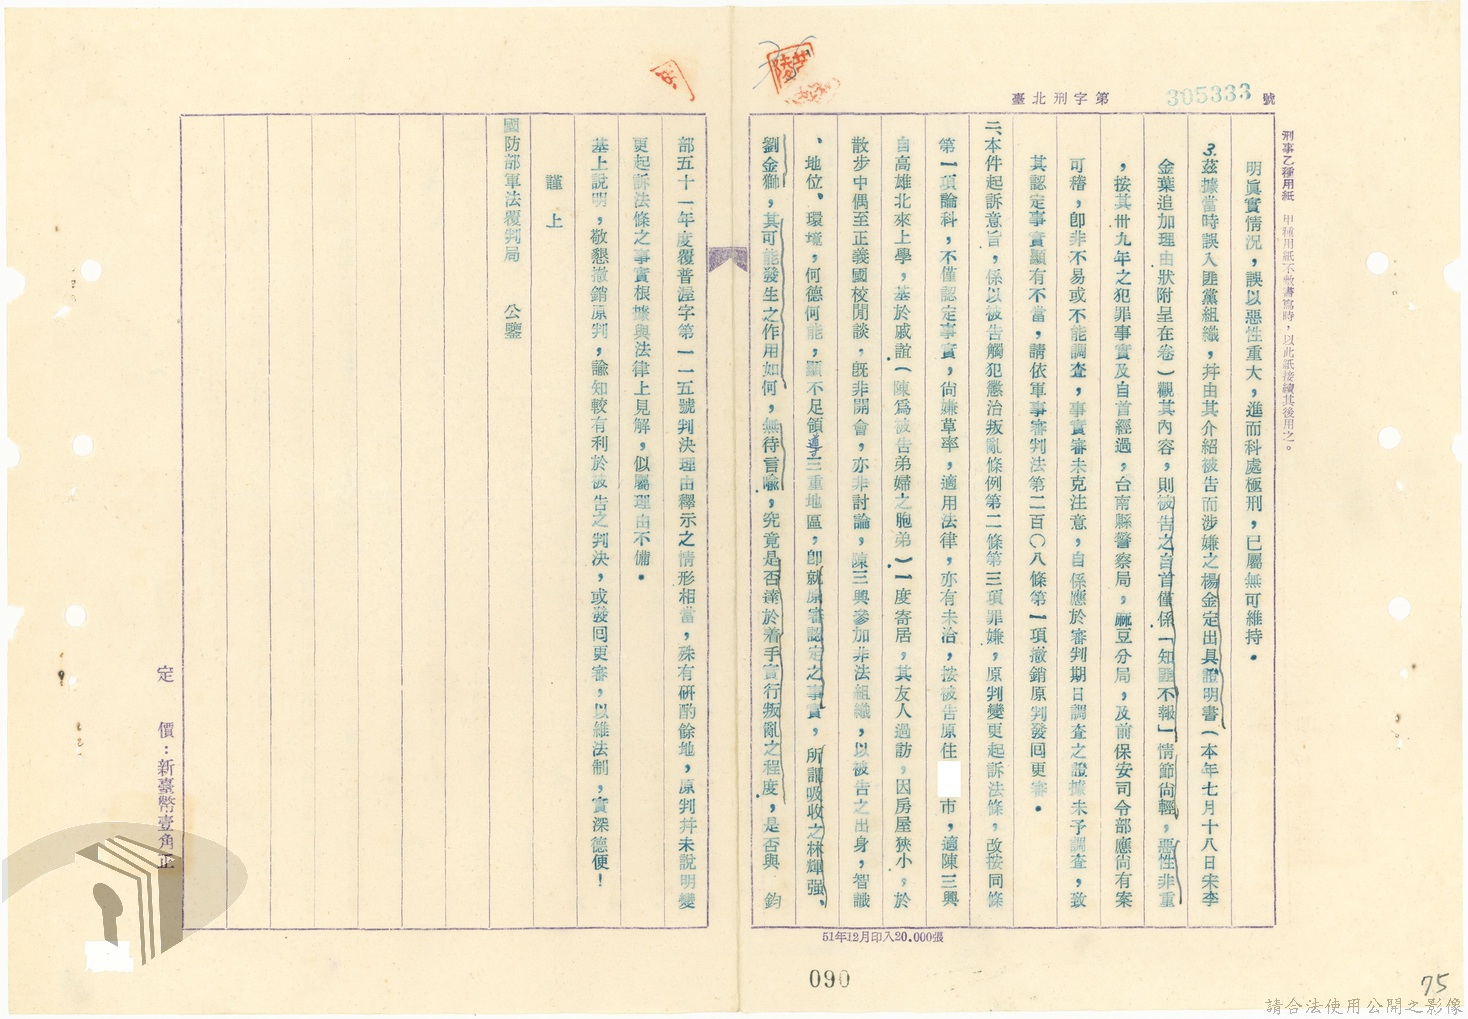 臺北刑字第 305333 號
刑事乙種用紙　甲種用紙不敷書寫時，以此紙接續其後用之。
明眞實情況，誤以惡性重大，進而科處極刑，已屬無可維持。
3.茲據當時誤入匪黨組織，幷由其介紹被告而涉嫌之楊金定出具證明書（本年七月十八日宋李
金葉追加理由狀附呈在卷）觀其內容，則被告之自首僅係「知匪不報」情節尙輕，惡性非重
，按其卅九年之犯罪事實及自首經過，台南縣警察局，麻豆分局，及前保安司令部應尙有案
可稽，卽非不易或不能調查，事實審未克注意，自係應於審判期日調查之證據未予調查，致
其認定事實顯有不當，請依軍事審判法第二百〇八條第一項撤銷原判發囘更審。
二、本件起訴意旨，係以被告觸犯懲治叛亂條例第二條第三項罪嫌，原判變更起訴法條，改按同條
第一項論科，不僅認定事實，尙嫌草率，適用法律，亦有未洽，按被告原住　市，適陳三興
自高雄北來上學，基於戚誼（陳爲被告弟婦之胞弟）一度寄居，其友人過訪，因房屋狹小，於
散步中偶至正義國校閒談，旣非開會，亦非討論，陳三興參加非法組織，以被告之出身，智識
、地位、環境，何德何能，顯不足領導三重地區，卽就原審認定之事實，所謂吸收之林輝强、
劉金獅，其可能發生之作用如何，無待言喩，究竟是否達於着手實行叛亂之程度，是否與　鈞
51年12月印入20.000張
部五十一年度覆普渥字第一一五號判決理由釋示之情形相當，殊有硏酌餘地，原判幷未說明變
更起訴法條之事實根據與法律上見解，似屬理由不備。
基上說明，敬懇撤銷原判，諭知較有利於被告之判決，或發囘更審，以維法制，實深德便！
謹　上
國防部軍法覆判局　　公鑒
定　價：新臺幣壹角正
090
75
請合法使用公開之影像